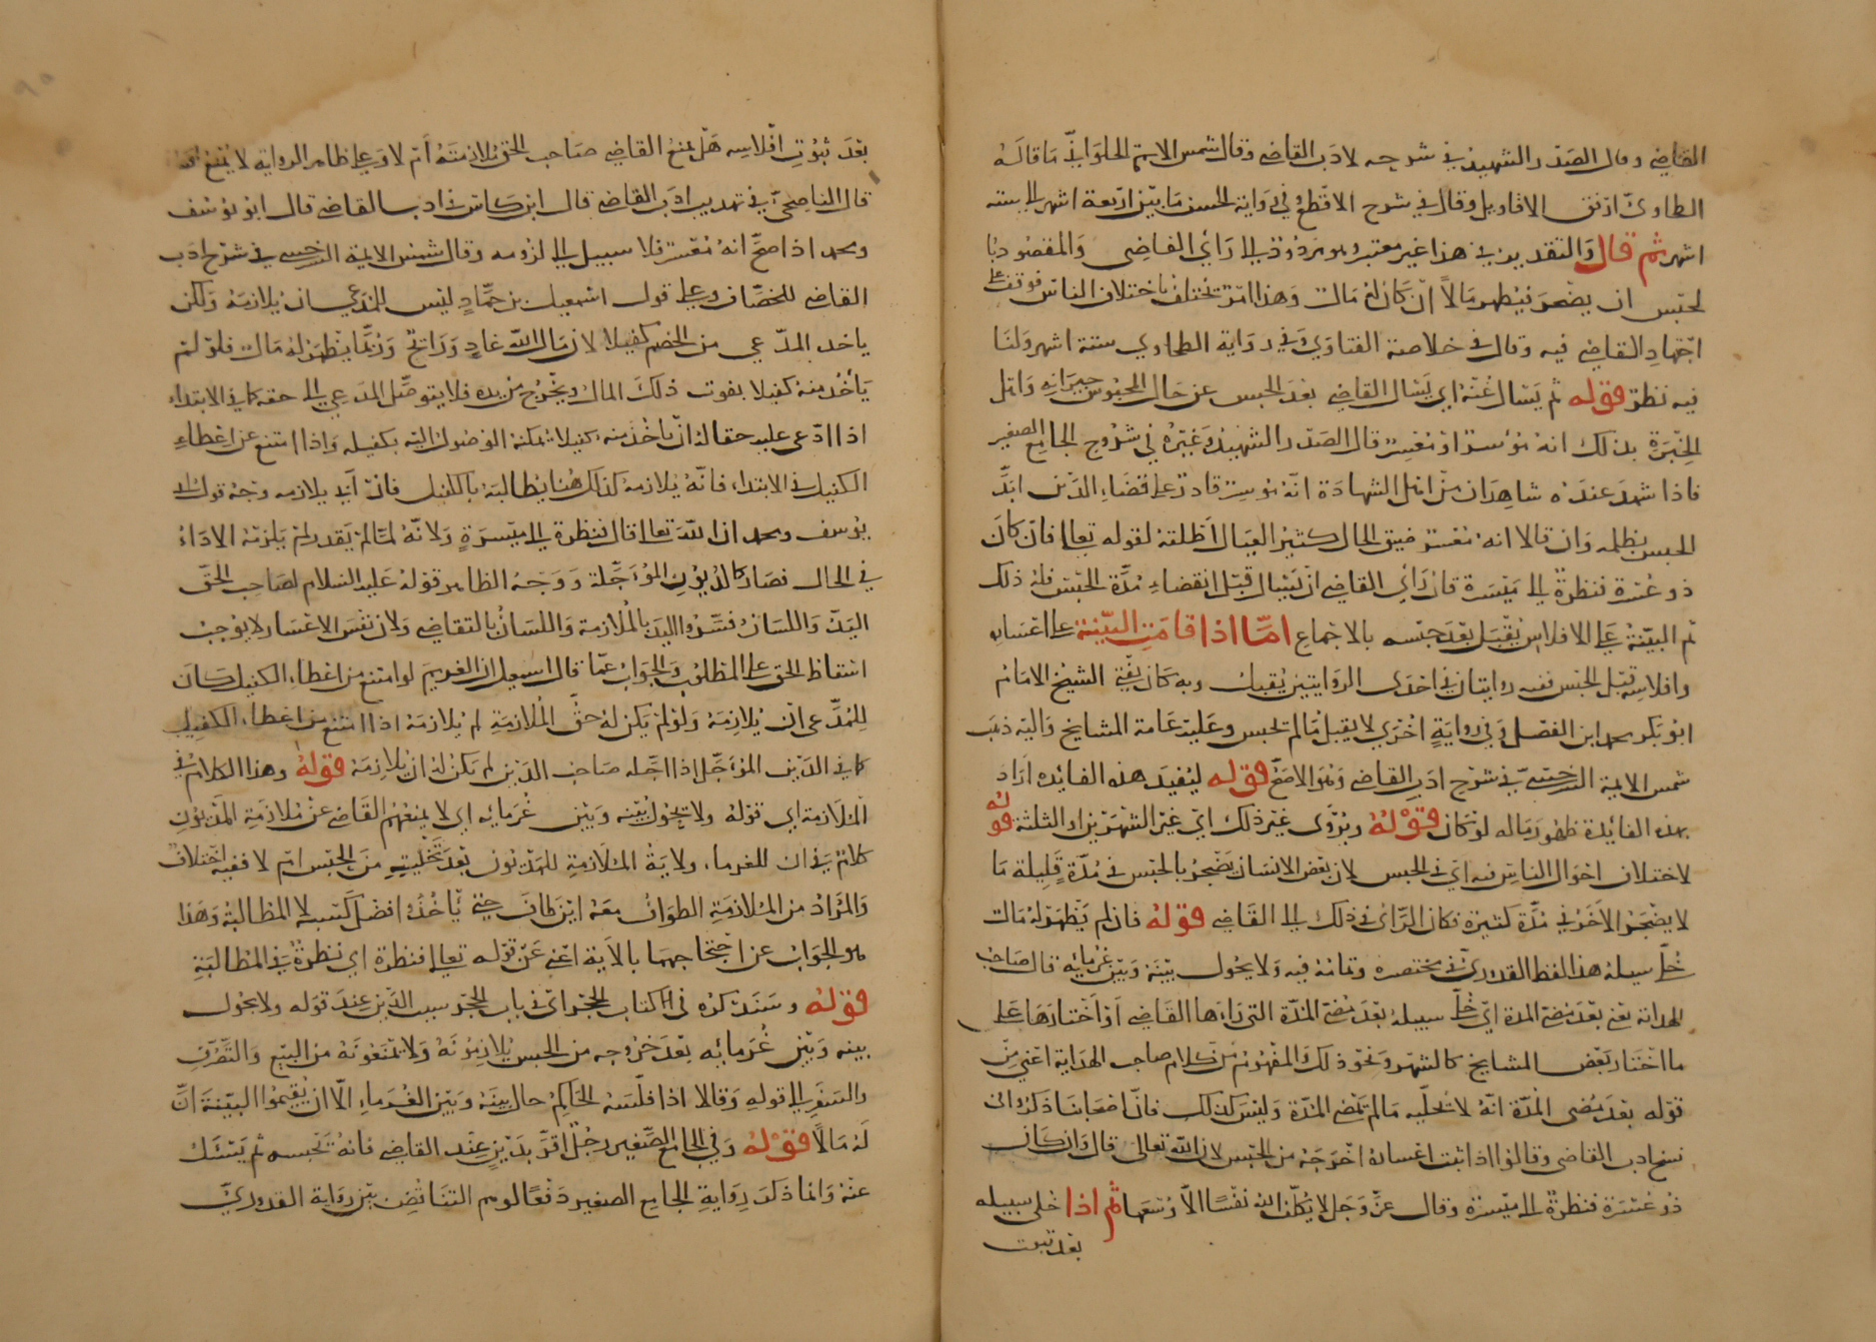 القاضي وقال الصدر الشهيد في شرحه لادب القاضي وقال شمس الايمة الحلواني ما قاله
الطحاوي ارفق الاقاويل وقال في شرح الاقطع وفي رواية الحسن ما بين اربعة اشهر الى ستة
اشهر ثم قال والتقدير في هذا غير معتبر وهو مردود الى راي القاضي والمقصود بالحبس
ان يضجر فيظهر مالا ان كان له مال وهذا امر يختلف باختلاف الناس فوقف على
اجتهاد القاضي فيه وقال في خلاصة الفتاوي وفي رواية الطحاوي ستة اشهر ولنا
فيه نظر قوله ثم يسال عنه اي يسال القاضي بعد الحبس عن حال المحبوس جيرانه واهل
الخبرة بذلك انه موسر او معسر قال الصدر الشهيد وغيره في شروح الجامع الصغير
فاذا شهد عنده شاهدان من اهل الشهادة انه موسر قادر على قضاء الدين ابد
الحبس بظلمه وان قالا انه معسر ضيق الحال كثير العيال اطلقه لقوله تعالى فان كان
ذو عسرة فنظرة الى ميسرة فان راي القاضي ان يسال قبل انقضاء مدة الحبس فله ذلك
ثم البينة على الافلاس يقبل بعد حبسه بالاجماع اما اذا قامت البينة على اعساره
وافلاسه قبل الحبس ففيه روايتان في احدى الروايتين يقبل وبه كان يفتي الشيخ الامام
ابو بكر محمد ابن الفضل وفي رواية اخري لا يقبل ما لم يحبس وعليه عامة المشايخ واليه ذهب
شمس الايمة السرخسي في شرح ادب القاضي وهو الاصح قوله ليفيد هذه الفائدة اراد
بهذه الفائدة ظهور ماله لو كان قوله ويروى غير ذلك اي غير الشهرين او الثلثة قوله
لاختلاف احوال الناس فيه اي في الحبس لان بعض الانسان يضجر بالحبس في مدة قليلة ما
لا يضجر الاخر في مدة كثيرة فكان الراي في ذلك الى القاضي قوله فان لم يظهر له مال
خلي سبيله هذا لفظ القدوري في مختصره وتمامه فيه ولا يحول بينه وبين غرمائه قال صاحب
الهداية يعني بعد مضي المدة اي خلي سبيله بعد مضي المدة التي راها القاضي او اختارها على
ما اختار بعض المشايخ كالشهر ونحو ذلك والمفهوم من كلام صاحب الهداية اعني من
قوله بعد مضي المدة انه لا يخليه ما لم تمض المدة وليس كذلك فان اصحابنا ذكروا في
نسخ ادب القاضي وقالوا اذا ثبت اعساره اخرجه من الحبس لان الله تعالى قال وان كان
ذو عسرة فنظرة الى ميسرة وقال عز وجل لا يكلف الله نفسا الا وسعها ثم اذا خلى سبيله
بعد ثبوت
بعد ثبوت افلاسه هل يمنع القاضي صاحب الحق ملازمته ام لا وعلى ظاهر الرواية لا يمنع
قال الناصحي في تهذيب ادب القاضي قال ابن كاس في ادب القاضي قال ابو يوسف
ومحمد اذا صح انه معسر فلا سبيل الى لزومه وقال شمس الايمة السرخسي في شرح ادب
القاضي للخصاف وعلى قول اسمعيل بن حماد ليس للمدعي ان يلازمه ولكن
ياخذ المدعي من الخصم كفيلا لان مال الله غاد ورايح وربما يظهر له مال فلو لم
ياخذ منه كفيلا يفوت ذلك المال ويخرج من يده فلا يتوصل المدعي الى حقه كما في الابتداء
اذا ادعى عليه حقا له ان ياخذ منه كفيلا تمكنه الوصول اليه بكفيله واذا امتنع عن اعطاء
الكفيل في الابتداء فانه يلازمه كذلك هنا يطالبه بالكفيل فان ابى يلازمه وجه قول ابي
يوسف ومحمد ان الله تعالى قال فنظرة الى ميسرة ولانه لما لم يقدر لم يلزمه الاداء
في الحال فصار كالديون المؤجلة ووجه الظاهر قوله عليه السلام لصاحب الحق
اليد واللسان فسروا اليد بالملازمة واللسان بالتقاضي ولان نفس الاعسار لا يوجب
اسقاط الحق على المطلوب والجواب عما قال اسمعيل ان الغريم لو امتنع من اعطاء الكفيل كان
للمدعي ان يلازمه ولو لم يكن له حق الملازمة لم يلازمه اذا امتنع من اعطاء الكفيل
كما في الدين المؤجل اذا اجله صاحب الدين لم يكن له ان يلازمه قوله وهذا الكلام في
الملازمة اي قوله ولا يحول بينه وبين غرمائه اي لا يمنعهم القاضي عن ملازمة المديون
كلام في ان للغرماء ولاية الملازمة للمديون بعد تخليته من الحبس ام لا ففيه اختلاف
والمراد من الملازمة الطواف معه اين طاف حتى ياخذه افضل كسبه لا المطالبة وهذا
هو الجواب عن احتجاجهما بالاية اعني عن قوله تعالى فنظرة اي نظرة في المطالبة
قوله وسنذكره في كتاب الحجر اي في باب الحجر بسبب الدين عند قوله ولا يحول
بينه وبين غرمائه بعد خروجه من الحبس يلازمونه ولا يمنعونه من البيع والتصرف
والسفر الى قوله وقالا اذا فلسه الحاكم حال بينه وبين الغرماء الا ان يقيموا البينة ان
له مالا قوله وفي الجامع الصغير رجل اقر بدين عند القاضي فانه تحبسه ثم يسئل
عنه وانما ذكر رواية الجامع الصغير دفعا لوهم التناقض بين رواية القدوري